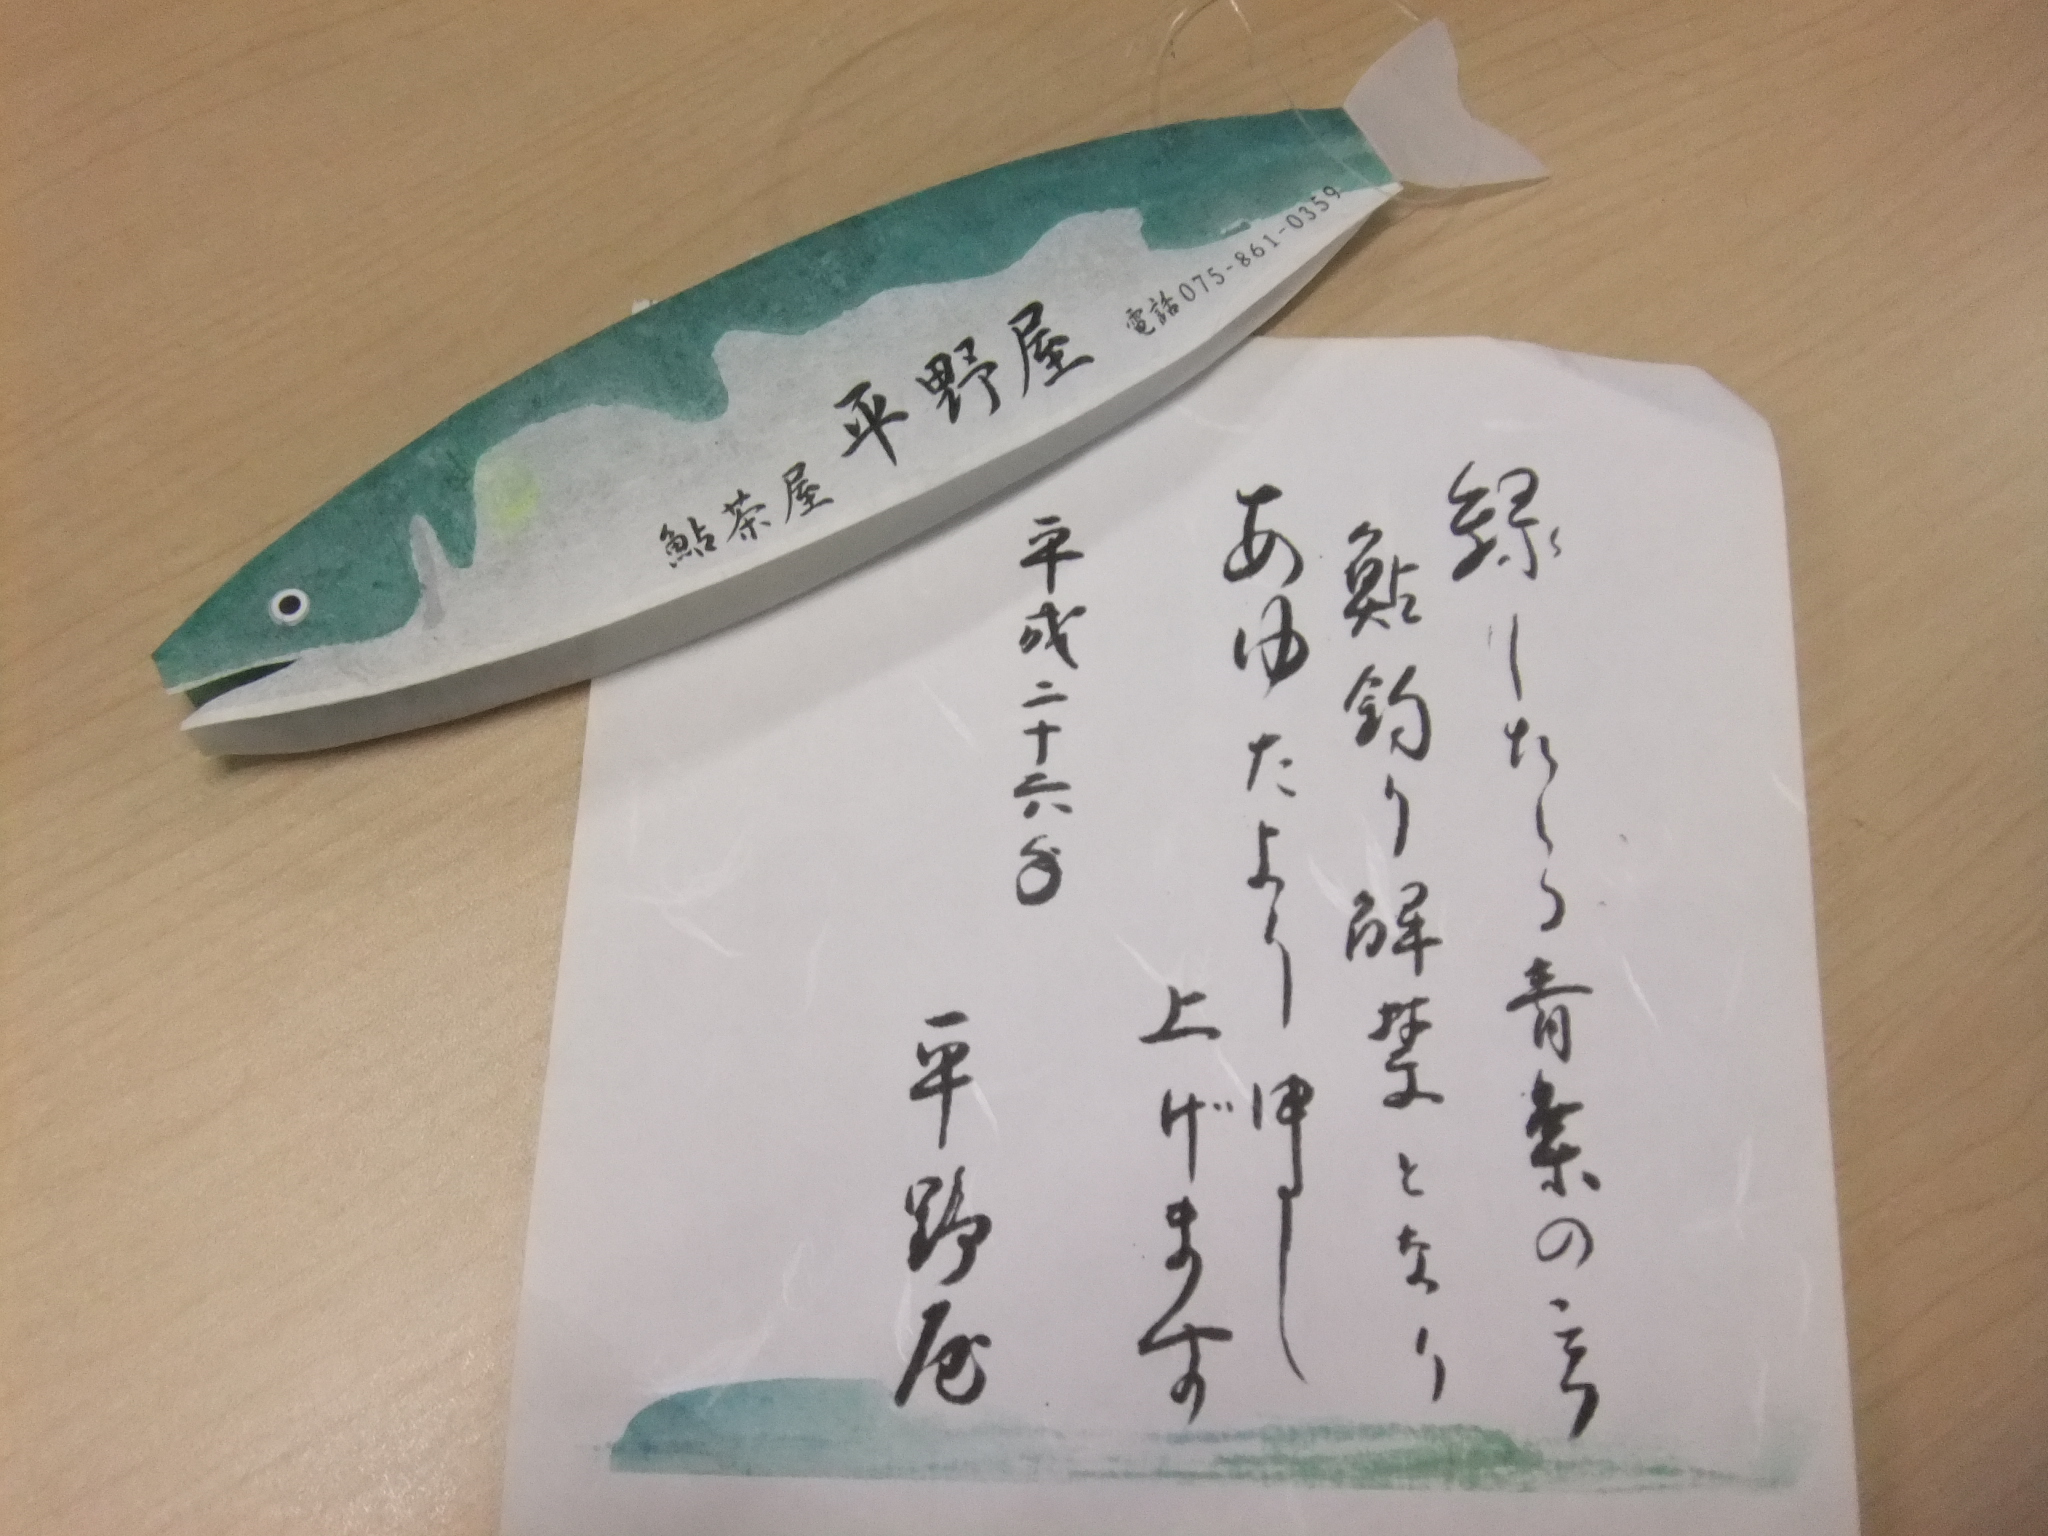 鮎茶屋 平野屋 電話075-861-0359
緑したゝる青葉の言
鮎釣り解禁となり
あゆたより申し
上げます
平成二十六年
平野屋